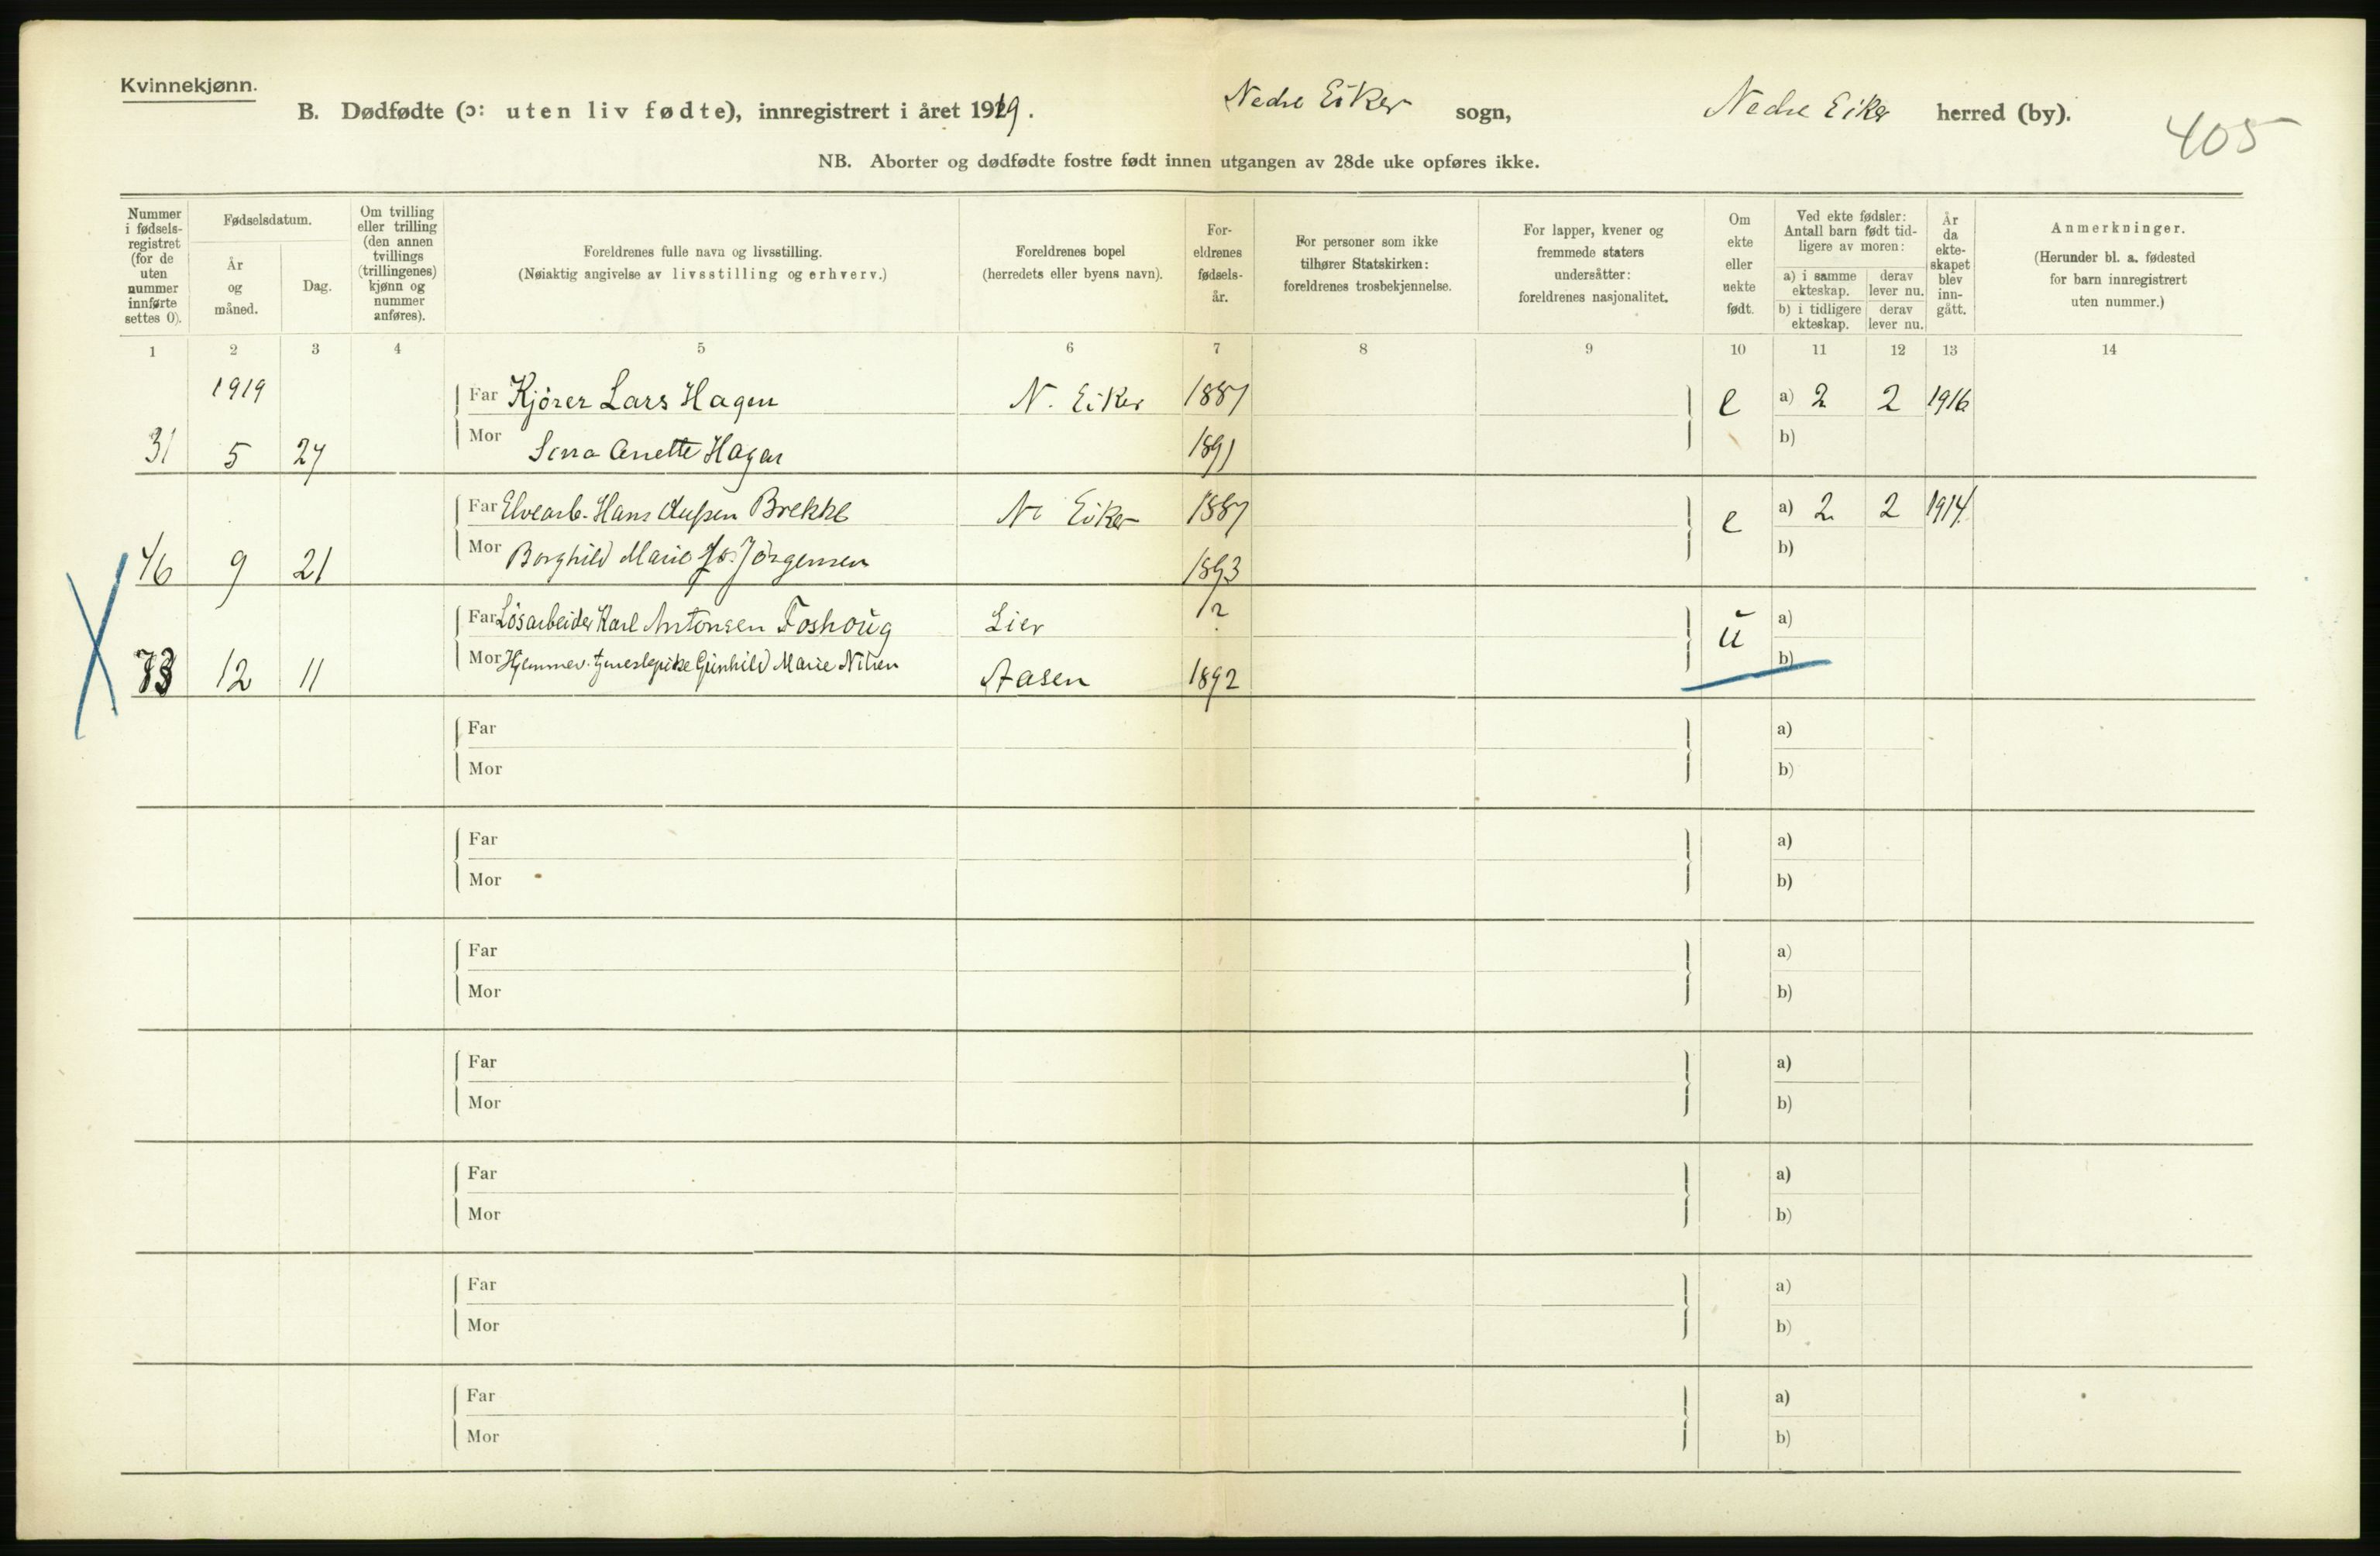 Kvinnekjønn.
B. Dødfødte (ɔ: uten liv fødte), innregistrert i året 1919. Nedre Eiker sogn, Nedre Eiker herred (by).
405
NB. Aborter og dødfødte fostre født innen utgangen av 28de uke opføres ikke.
Nummer i fødsels-registret (for de uten nummer innførte settes 0).
Fødselsdatum.
År og måned.
Dag.
Om tvilling eller trilling (den annen tvillings (trillingenes) kjønn og nummer anføres).
Foreldrenes fulle navn og livsstilling.
(Nøiaktig angivelse av livsstilling og erhverv.)
Foreldrenes bopel
(herredets eller byens navn).
For-eldrenes fødsels-år.
For personer som ikke tilhører Statskirken: foreldrenes trosbekjennelse.
For lapper, kvener og fremmede staters undersåtter: foreldrenes nasjonalitet.
Om ekte eller uekte født.
Ved ekte fødsler: Antall barn født tid-ligere av moren:
a) i samme ekteskap.
derav lever nu.
b) i tidligere ekteskap.
derav lever nu.
År da ekte-skapet blev inn-gått.
Anmerkninger.
(Herunder bl. a. fødested for barn innregistrert uten nummer.)
1 2 3 4 5 6 7 8 9 10 11 12 13 14
1919
Far Kjörer Lars Hagen N. Eiker 1887 e a) 2 2 1916
31 5 27 Mor Anette Hagen 1891 b)
Far Elvearb. Hans Brekke N. Eiker 1887 e a) 2 2 1914
46 9 21 Mor Borghild Marie Jörgensen 1893 b)
Far Løsarbeider Karl Antonsen Foshoug Lier ? u a)
73 12 11 Mor Hjemmev. tjenestepike Gunhild Marie Nilsen Aasen 1892 b)
Far a)
Mor b)
Far a)
Mor b)
Far a)
Mor b)
Far a)
Mor b)
Far a)
Mor b)
Far a)
Mor b)
Far a)
Mor b)